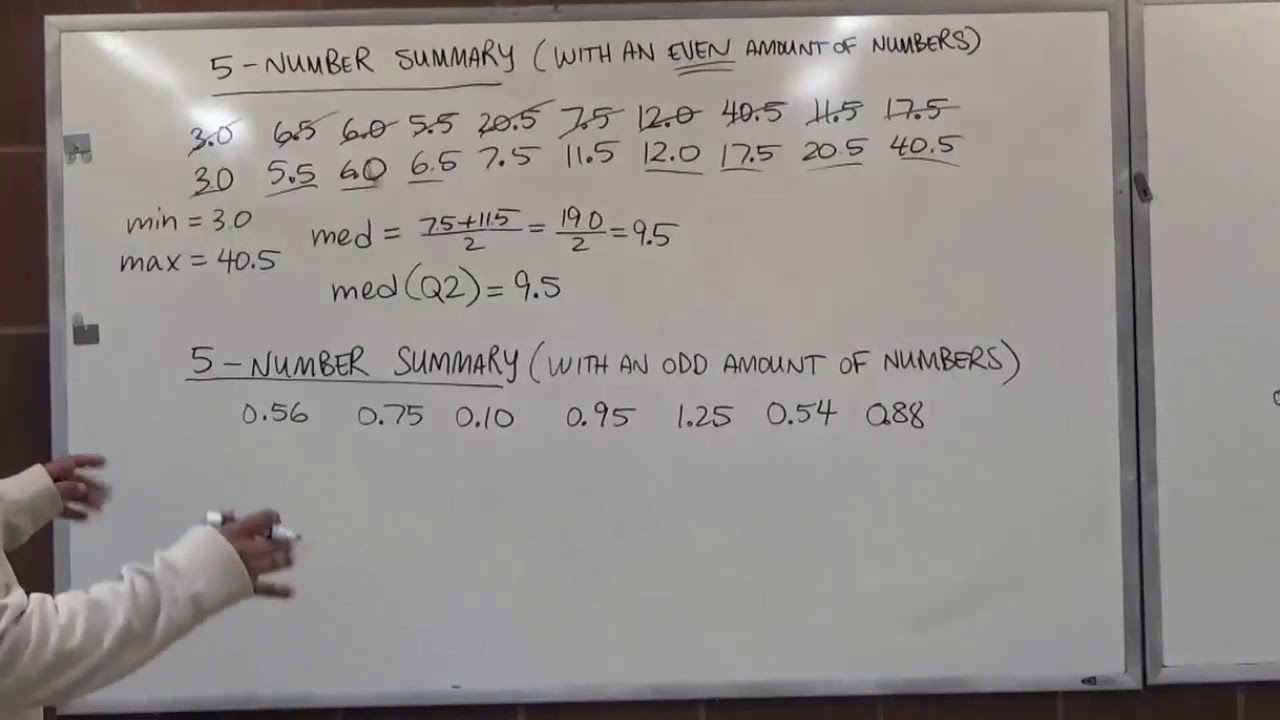 5-NUMBER SUMMARY (WITH AN EVEN AMOUNT OF NUMBERS)
3.0 6.5 6.0 5.5 20.5 7.5 12.0 40.5 11.5 17.5
3.0 5.5 6.0 6.5 7.5 11.5 12.0 17.5 20.5 40.5
min = 3.0
max = 40.5
med = 7.5+11.5/2 = 19.0/2 = 9.5
med(Q2) = 9.5
5-NUMBER SUMMARY (WITH AN ODD AMOUNT OF NUMBERS)
0.56 0.75 0.10 0.95 1.25 0.54 0.88